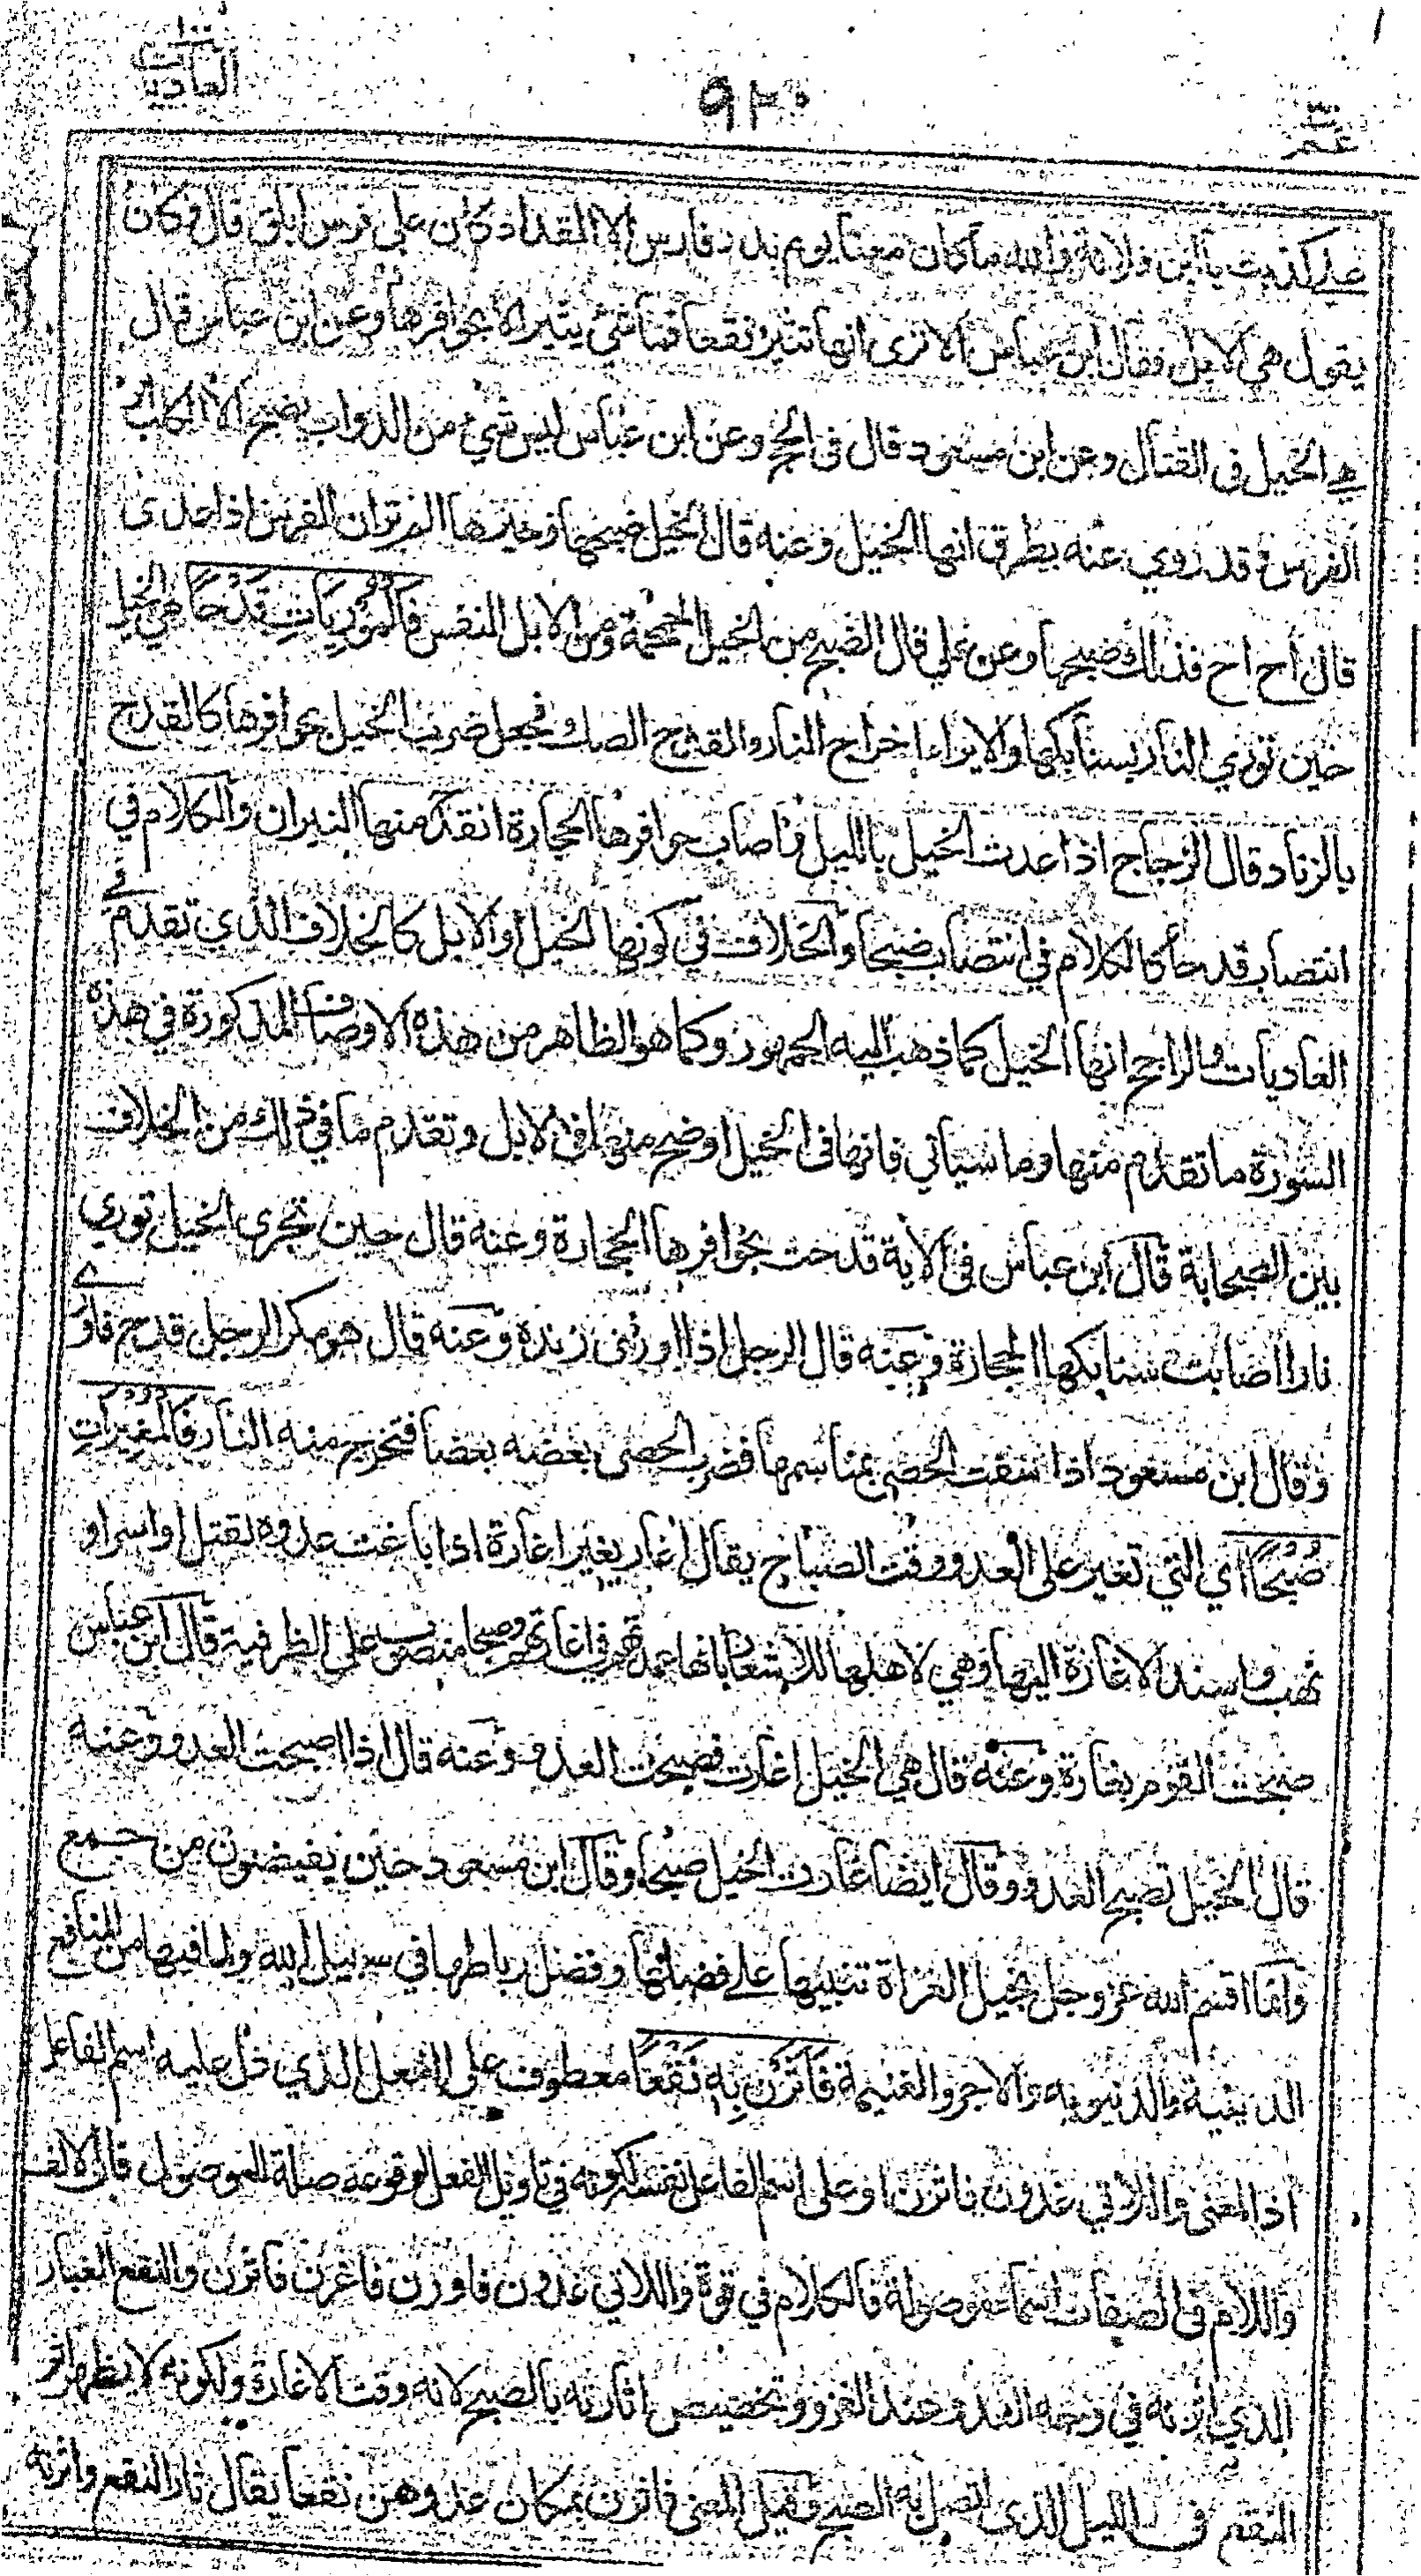 عم
٩٢٠
العاديات
علي كذبت يا ابن فلانة والله ما كان معنا يوم بدر فارس الا المقداد كان على فرس ابلق قال وكان
يقول هي الابل فقال ابن عباس الا ترى انها تثير نقعا فما شئ يثير الا بحوافرها وعن ابن عباس قال
هي الخيل في القتال وعن ابن مسعود قال في الحج وعن ابن عباس ليس شيء من الدواب يضبح الا الكلب او
الفرس وقد روي عنه بطرق انها الخيل وعنه قال الخيل ضبحها زحيرها الم تر ان الفرس اذا عدى
قال اح اح فذلك ضبحها وعن علي قال الضبح من الخيل الحمحمة ومن الابل النفس فَالْمُوْرِيَاتِ قَدْحًا هي الخيل
حين توري النار بسنابكها والايراء اخراج النار والقدح الصك فجعل ضرب الخيل بحوافرها كالقدح
بالزناد قال الزجاج اذا عدت الخيل بالليل فاصاب حوافرها الحجارة انقدح منها النيران والكلام في
انتصاب قدحا كالكلام في انتصاب ضبحا والخلاف في كونها الخيل او الابل كالخلاف الذي تقدم في
العاديات والراجح انها الخيل كما ذهب اليه الجمهور وكما هو الظاهر من هذه الاوصاف المذكورة في هذه
السورة ما تقدم منها وما سيأتي فانها في الخيل اوضح منها في الابل وتقدم ما في ذلك من الخلاف
بين الصحابة قال ابن عباس في الآية قدحت بحوافرها الحجارة وعنه قال حين تجرى الخيل توري
نارا اصابت سنابكها الحجارة وعنه قال الرجل اذا اورى زنده وعنه قال هو مكر الرجل قدح فاورى
وقال ابن مسعود اذا نسفت الحصى بمناسمها فضرب الحصى بعضه بعضا فتخرج منه النار فَالْمُغِيْرَاتِ
صُبْحًا اي التي تغير على العدو وقت الصباح يقال اغار يغير اغارة اذا باغت عدوه لقتل او اسر او
نهب واسند الاغارة اليها وهي لاهلها للاشعار بانها عمدتهم في اغارتهم وصبحا منصوب على الظرفية قال ابن عباس
صبحت القوم بغارة وعنه قال هي الخيل اغارت فصبحت العدو وعنه قال اذا اصبحت العدو وعنه
قال الخيل تصبح العدو وقال ايضا غارت الخيل صبحا وقال ابن مسعود حين يفيضون من جمع
وانما اقسم الله عز وجل بخيل الغزاة تنبيها على فضلها وفضل رباطها في سبيل الله ولما فيها من المنافع
الدينية والدنيوية والاجر والغنيمة فَأَثَرْنَ بِهِ نَقْعًا معطوف على الفعل الذي دل عليه اسم الفاعل
اذ المعنى واللاتي عدون فاثرن او على اسم الفاعل نفسه لكونه في تأويل الفعل لوقوعه صلة للموصول فان الالف
واللام في الصفات اسماء موصولة فالكلام في قوة واللاتي عدون فاورين فاغرن فاثرن والنقع الغبار
الذي اثرنه في وجه العدو عند الغزو وتخصيص اثارته بالصبح لانه وقت الاغارة ولكونه لا يظهر اثر
النقع في الليل الذي اتصل به الصبح وقيل المعنى فاثرن بمكان عدوهن نقعا يقال ثار النقع واثرته